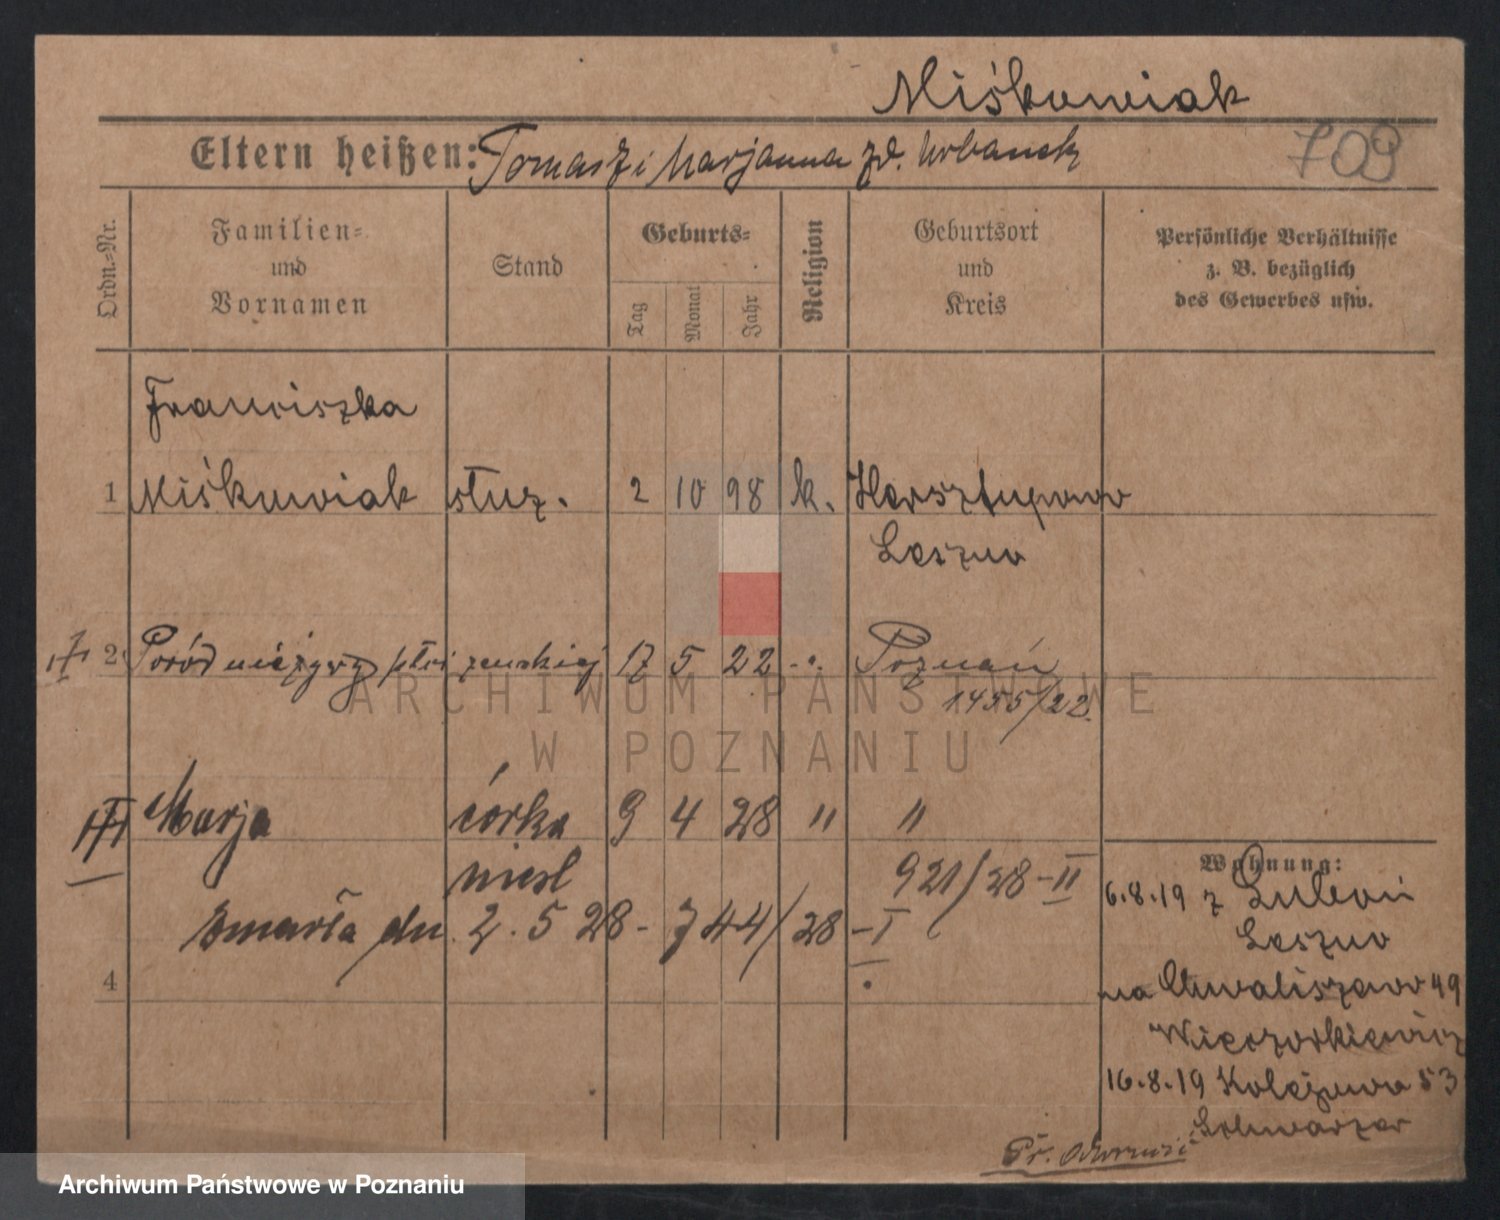 Miśkowiak
Eltern heißen: Tomasz i Marjanna zd. Urbanek
709
Ordn.=Nr.
Familien=
und
Vornamen
Stand
Geburts=
Tag
Monat
Jahr
Religion
Geburtsort
und
Kreis
Persönliche Verhältnisse
z. B. bezüglich
des Gewerbes usw.
Franciszka
1 Miśkowiak służ. 2 10 98 k. Hersztupowo
Leszno
2 Poród nieżywy płci żeńskiej 17 5 22 -"- Poznań
1455/22.
Marja córka 9 4 28 " "
niesl
921/28-II
zmarła dn. 2. 5 28 - 744/28 -I
4
Wohnung:
6.8.19 z
Leszno
na Chwaliszewo 49
Wieczorkiewicz
16.8.19 Kolejowa 53
Schwarzer
ARCHIWUM PAŃSTWOWE
W POZNANIU
Archiwum Państwowe w Poznaniu